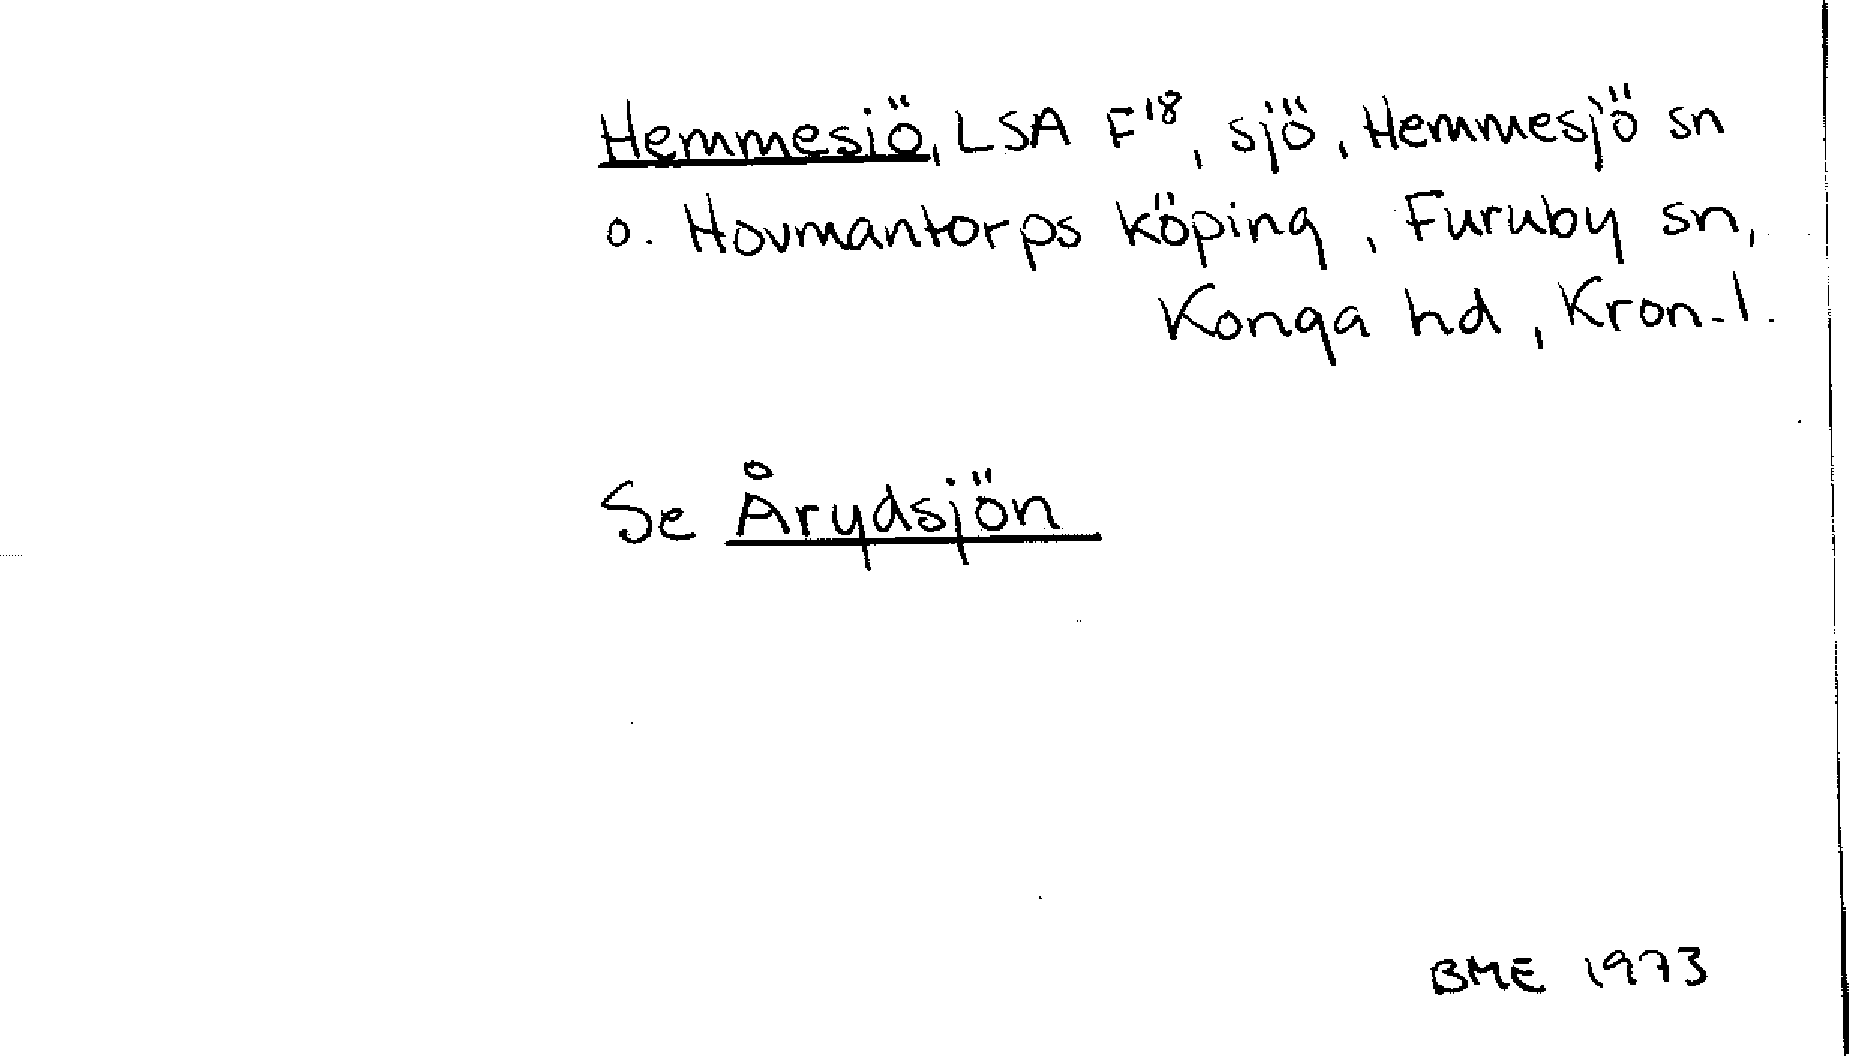 Hemmesiö, LSA F¹⁸, sjö, Hemmesjö sn
o. Hovmantorps köping, Furuby sn,
Konga hd, Kron. l.
Se Årydsjön
BME 1973